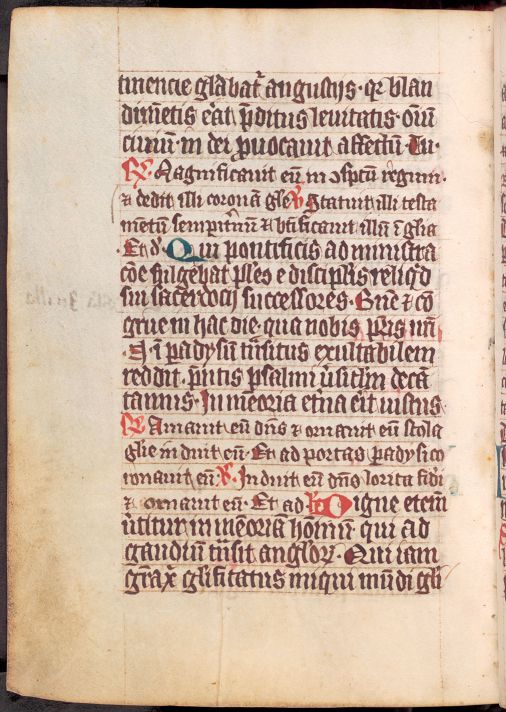 tinencie gl̄abat᷒ angustijs · qr blan
dim̄etis eāt p̄ditus leuitatis · om̄
ciuiū · in dei ꝓuocauit affectū Tu ·
R. Magnificauit eū in ɔsp̄tū regum ·
⁊ dedit illi coronā gl̄e V Statuit illi testa
mētū sempit̄nū ⁊ bt̄ificauit illū ī gl̄ia
Et d · Qui pontificis administra
cōe fulgebat p̄les e discip̄lis reliq̄d
sui sacerdocij successores · Bn̄e ⁊ cō
grue in hac die · qua nobis pr̄is nr̄i
A ī padysū trāsitus exultabilem
reddit · p̄ntis psalmi v̄sicl̄m decā
tamus · In mēoria et̄na eīt iustus
R Amauit eū dn̄s ⁊ ornauit eū stola
glīe induit eū · Et ad portas padysi co
ronauit eū · V. Induit eū dn̄s lorica fidī
⁊ ornauit eū · Et ad Digne etem̄
v̄titur in mēoriā homī̄ qui ad
gaudiū trāsit angl̄oꝝ · Qui iam
gr̄aꝝ gl̄ificatus miqui mūdi gl̄i